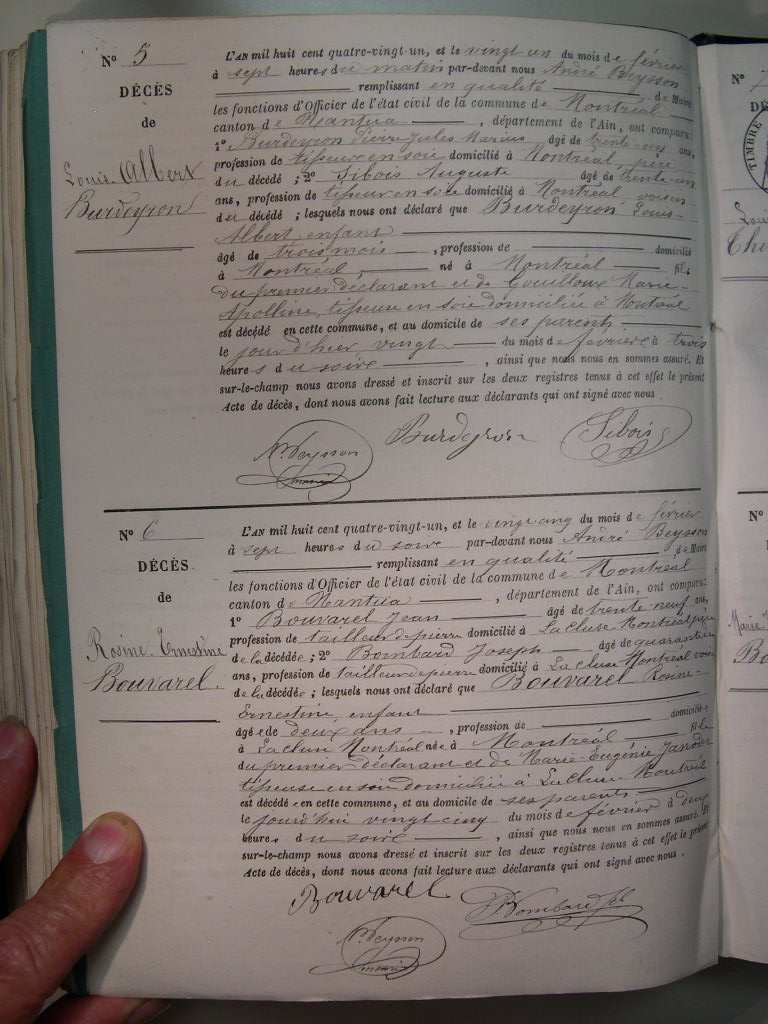 N° 5
DÉCÈS
de
Louis Albert
Burdeyron
L'AN mil huit cent quatre-vingt-un, et le vingt un du mois de février
à sept heures du matin par-devant nous André Beysson
remplissant en qualité de Maire
les fonctions d'Officier de l'état civil de la commune de Montréal
canton de Nantua, département de l'Ain, ont comparu:
1° Burdeyron Pierre Jules Marius âgé de trente-un ans,
profession de tisseur en soie domicilié à Montréal, père
du décédé; 2° Sibois Auguste âgé de trente-un
ans, profession de tisseur en soie domicilié à Montréal voisin
du décédé; lesquels nous ont déclaré que Burdeyron Louis-
Albert enfant
âgé de trois mois, profession de domicilié
à Montréal, né à Montréal fils
du premier déclarant et de Marie-
Apolline, tisseuse en soie domiciliée à Montréal
est décédé en cette commune, et au domicile de ses parents
le jour d'hier vingt du mois de février à trois
heures du soir, ainsi que nous nous en sommes assuré. Et
sur-le-champ nous avons dressé et inscrit sur les deux registres tenus à cet effet le présent
Acte de décès, dont nous avons fait lecture aux déclarants qui ont signé avec nous.
Burdeyron
Sibois
Beysson
maire
N° 6
DÉCÈS
de
Rosine Ernestine
Bouvarel
L'AN mil huit cent quatre-vingt-un, et le vingt cinq du mois de février
à sept heures du soir par-devant nous André Beysson
remplissant en qualité de Maire
les fonctions d'Officier de l'état civil de la commune de Montréal
canton de Nantua, département de l'Ain, ont comparu:
1° Bouvarel Jean âgé de trente neuf ans,
profession de tailleur de pierre domicilié à La Cluse Montréal père
de la décédée; 2° Bombard Joseph âgé de quarante
ans, profession de tailleur de pierre domicilié à La Cluse Montréal voisin
de la décédée; lesquels nous ont déclaré que Bouvarel Rosine-
Ernestine, enfant
âgée de deux ans, profession de domiciliée
à La Cluse Montréal née à Montréal fille
du premier déclarant et de Marie-Eugénie
tisseuse en soie domiciliée à La Cluse Montréal
est décédée en cette commune, et au domicile de ses parents
le jourd'hui vingt cinq du mois de février à deux
heures du soir, ainsi que nous nous en sommes assuré. Et
sur-le-champ nous avons dressé et inscrit sur les deux registres tenus à cet effet le présent
Acte de décès, dont nous avons fait lecture aux déclarants qui ont signé avec nous.
Bouvarel
Bombard
Beysson
maire
N°
TIMBRE
N°
Marie